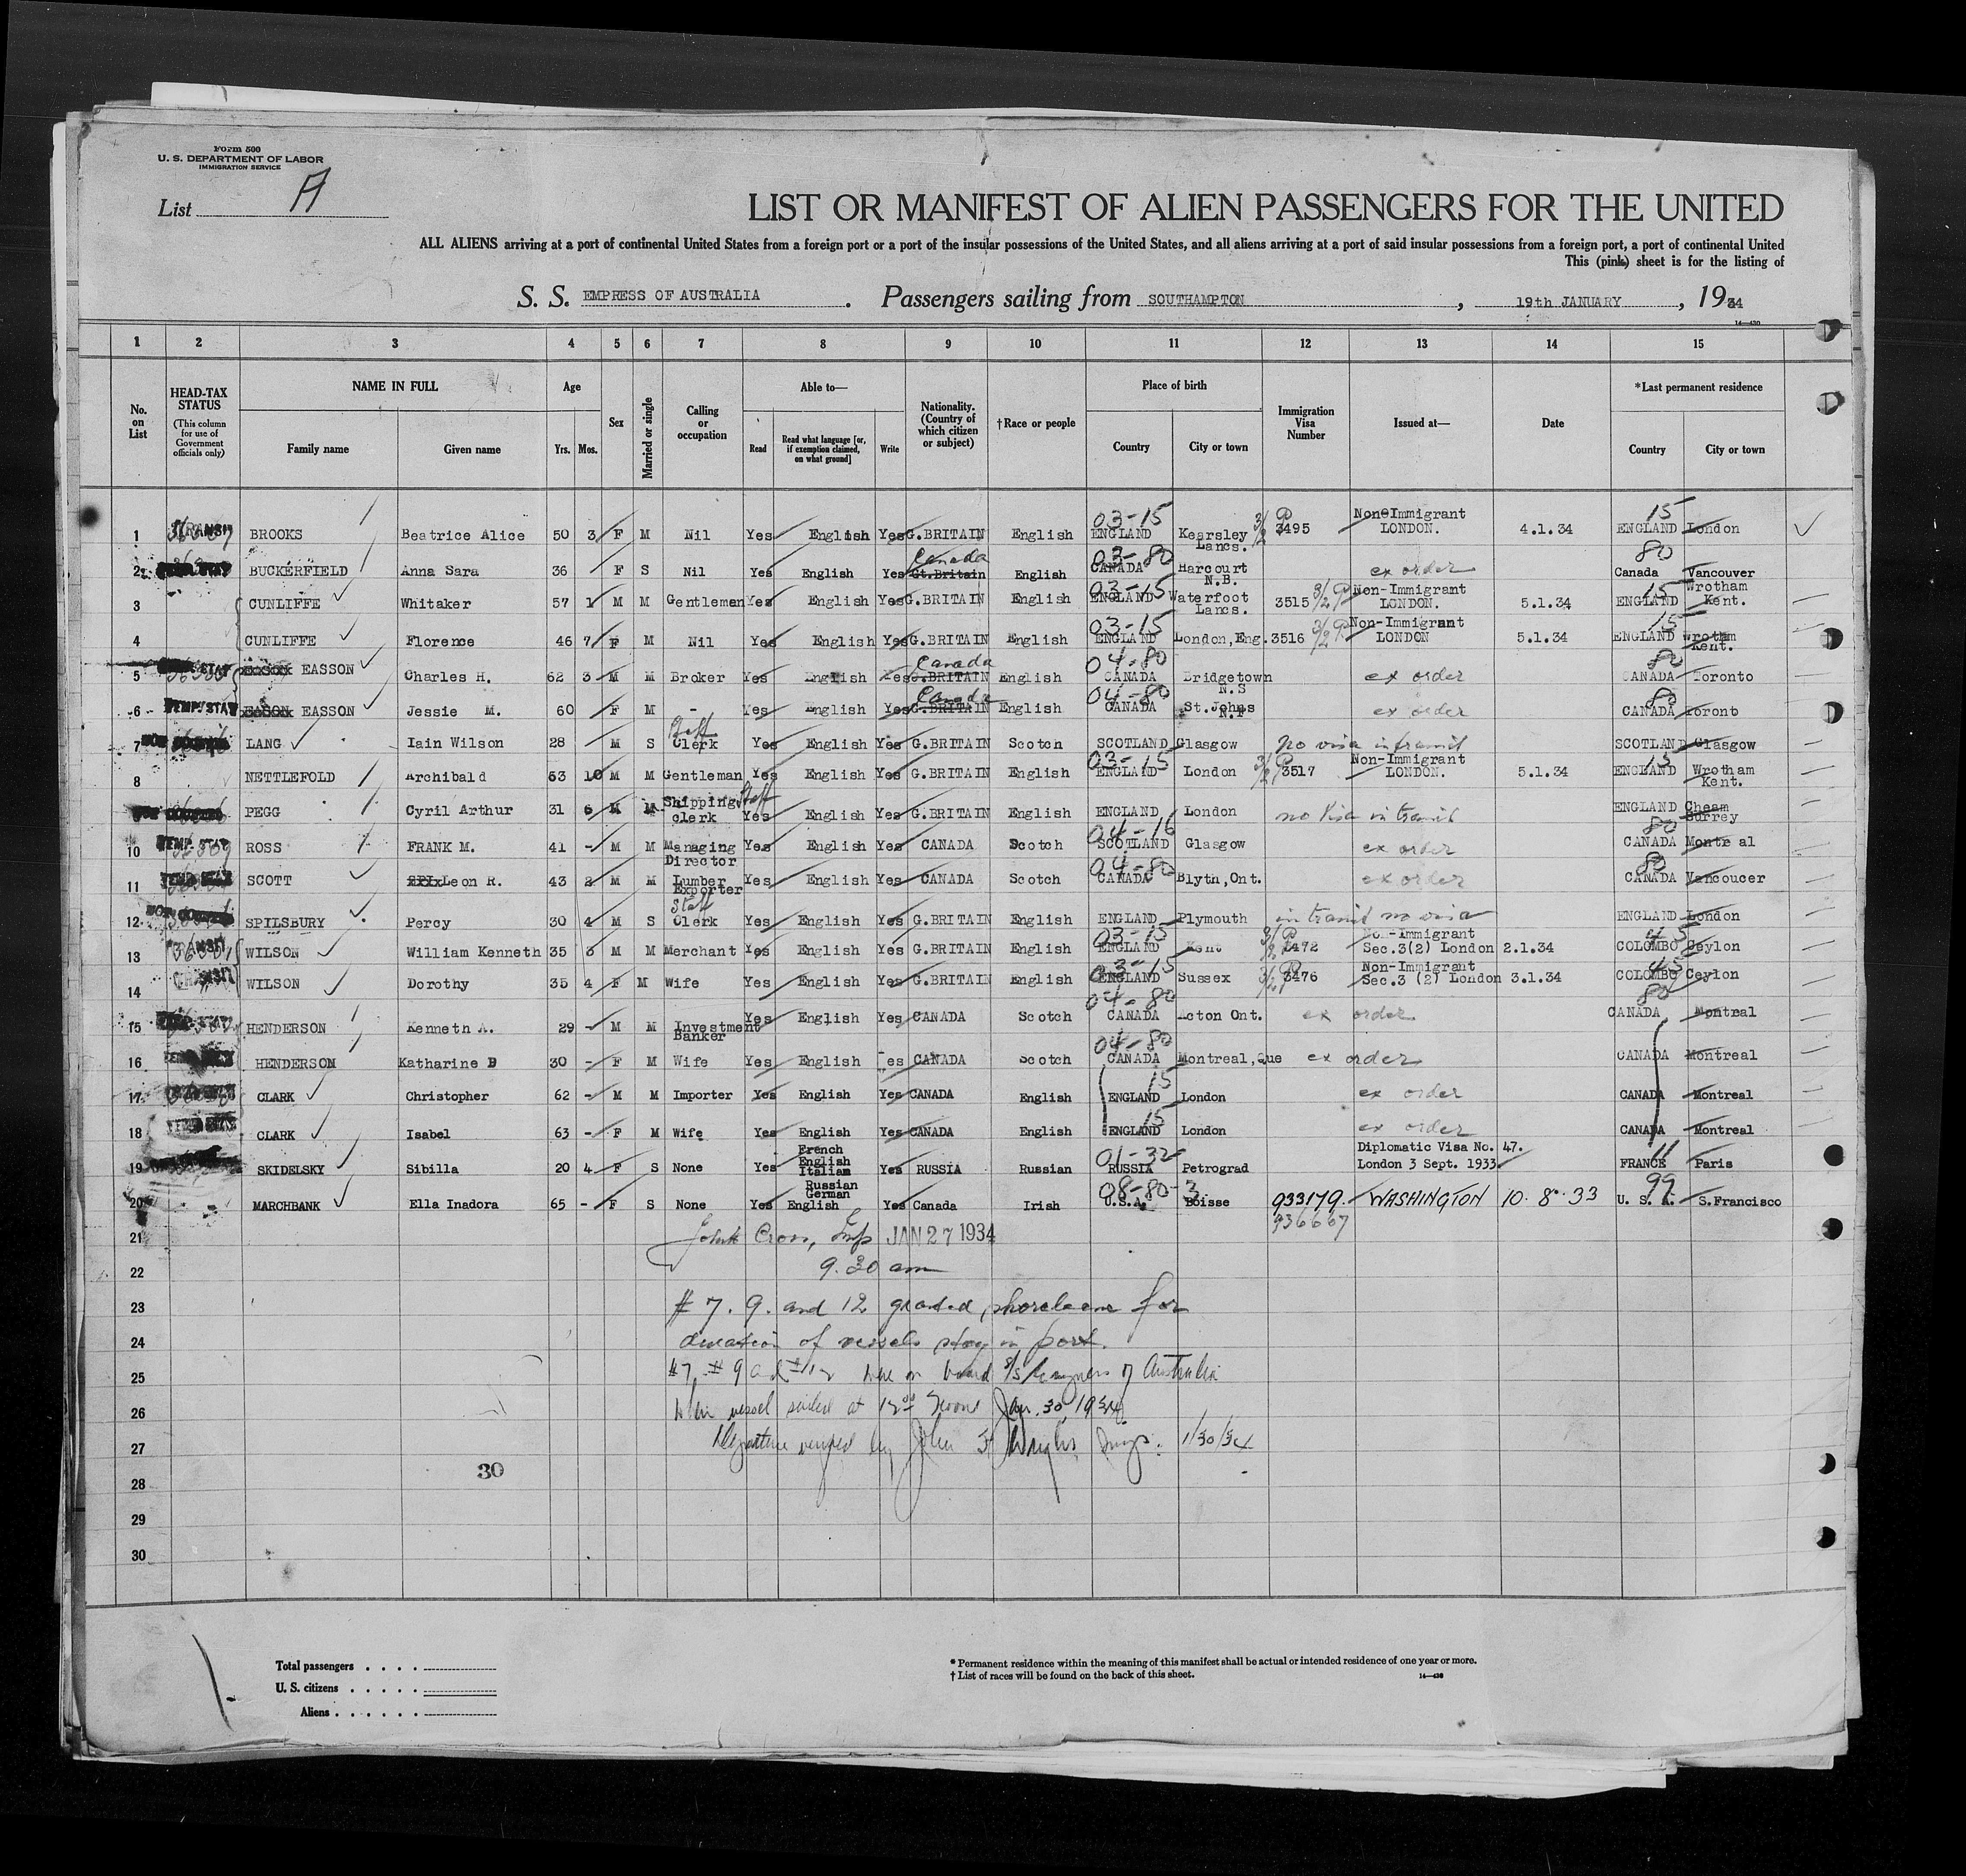 Form 500
U. S. DEPARTMENT OF LABOR
IMMIGRATION SERVICE
List A
LIST OR MANIFEST OF ALIEN PASSENGERS FOR THE UNITED
ALL ALIENS arriving at a port of continental United States from a foreign port or a port of the insular possessions of the United States, and all aliens arriving at a port of said insular possessions from a foreign port, a port of continental United
This (pink) sheet is for the listing of
S. S. EMPRESS OF AUSTRALIA . Passengers sailing from SOUTHAMPTON , 19th JANUARY , 1934
14—430
1 2 3 4 5 6 7 8 9 10 11 12 13 14 15
No. on List
HEAD-TAX STATUS (This column for use of Government officials only)
NAME IN FULL Family name Given name
Age Yrs. Mos.
Sex
Married or single
Calling or occupation
Able to— Read Read what language [or, if exemption claimed, on what ground] Write
Nationality. (Country of which citizen or subject)
†Race or people
Place of birth Country City or town
Immigration Visa Number
Issued at—
Date
*Last permanent residence Country City or town
1 TRANSIT BROOKS Beatrice Alice 50 3 F M Nil Yes English Yes G.BRITAIN English 03-15 ENGLAND Kearsley Lancs. 3/2 P 3495 Non-Immigrant LONDON. 4.1.34 15 ENGLAND London
2 BUCKERFIELD Anna Sara 36 F S Nil Yes English Yes Canada Gt.Britain English 03-80 CANADA Harcourt N.B. ex order 80 Canada Vancouver
3 CUNLIFFE Whitaker 57 1 M M Gentleman Yes English Yes G.BRITAIN English 03-15 ENGLAND Waterfoot Lancs. 3515 3/2 P Non-Immigrant LONDON. 5.1.34 15 ENGLAND Wrotham Kent.
4 CUNLIFFE Florence 46 7 F M Nil Yes English Yes G.BRITAIN English 03-15 ENGLAND London,Eng. 3516 3/2 P Non-Immigrant LONDON 5.1.34 15 ENGLAND Wrotham Kent.
5 EASSON Charles H. 62 3 M M Broker Yes English Yes Canada G.BRITAIN English 04-80 CANADA Bridgetown N.S ex order 80 CANADA Toronto
6 TEMP. STAY EASSON Jessie M. 60 F M - Yes English Yes Canada G.BRITAIN English 04-80 CANADA St.Johns N.F ex order 80 CANADA Toronto
7 LANG Iain Wilson 28 M S Staff Clerk Yes English Yes G.BRITAIN Scotch SCOTLAND Glasgow no visa in transit SCOTLAND Glasgow
8 NETTLEFOLD Archibald 63 10 M M Gentleman Yes English Yes G.BRITAIN English 03-15 ENGLAND London 3/2 P 3517 Non-Immigrant LONDON. 5.1.34 15 ENGLAND Wrotham Kent.
PEGG Cyril Arthur 31 6 M M Shipping Staff clerk Yes English Yes G.BRITAIN English ENGLAND London no visa in transit ENGLAND Cheam Surrey
10 TEMP. STAY ROSS FRANK M. 41 - M M Managing Director Yes English Yes CANADA Scotch 04-16 SCOTLAND Glasgow ex order 80 CANADA Montreal
11 SCOTT Leon R. 43 2 M M Lumber Exporter Yes English Yes CANADA Scotch 04-80 CANADA Blyth,Ont. ex order 80 CANADA Vancoucer
12 SPILSBURY Percy 30 4 M S Staff Clerk Yes English Yes G.BRITAIN English ENGLAND Plymouth in transit no visa ENGLAND London
13 WILSON William Kenneth 35 M M Merchant Yes English Yes G.BRITAIN English 03-15 ENGLAND Kent 3/2 P 3472 Non-Immigrant Sec.3(2) London 2.1.34 45 COLOMBO Ceylon
14 WILSON Dorothy 35 4 F M Wife Yes English Yes G.BRITAIN English 03-15 ENGLAND Sussex 3/2 P 3476 Non-Immigrant Sec.3 (2) London 3.1.34 45 COLOMBO Ceylon
15 HENDERSON Kenneth A. 29 - M M Investment Banker Yes English Yes CANADA Scotch 04-80 CANADA Acton Ont. ex order 80 CANADA Montral
16 HENDERSON Katharine B 30 - F M Wife Yes English Yes CANADA Scotch 04-80 CANADA Montreal,Que ex order CANADA Montreal
17 CLARK Christopher 62 - M M Importer Yes English Yes CANADA English 15 ENGLAND London ex order CANADA Montreal
18 CLARK Isabel 63 - F M Wife Yes English Yes CANADA English 15 ENGLAND London ex order CANADA Montreal
19 SKIDELSKY Sibilla 20 4 F S None Yes French English Italian Russian German Yes RUSSIA Russian 01-32 RUSSIA Petrograd Diplomatic Visa No. 47. London 3 Sept. 1933. 11 FRANCE Paris
20 MARCHBANK Ella Inadora 65 - F S None Yes English Yes Canada Irish 08-80-3 U.S.A. Boisse 933179 WASHINGTON 10.8.33 99 U. S. A. S.Francisco
936667
21 John Cross, Insp JAN 27 1934
22 9.30 am
23 # 7. 9. and 12 granted shoreleave for
24 duration of vessels stay in port.
25 #7, #9 and #12 were on board S/S Empress of Australia
26 when vessel sailed at 12 00 Noon Jan. 30, 1934
27 Departure verified by John Insp. 1/30/34
28 30
29
30
Total passengers . . . .
U. S. citizens . . . . .
Aliens . . . . . .
* Permanent residence within the meaning of this manifest shall be actual or intended residence of one year or more.
† List of races will be found on the back of this sheet.
14—430